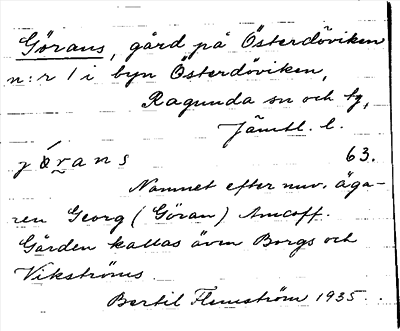 Görans, gård på Österdöviken
n:r 1 i byn Österdöviken,
Ragunda sn och tg,
Jämtl. l.
jö́r̬ans 63.
Namnet efter nuv. äga-
ren Georg (Göran) Amcoff.
Gården kallas även Borgs och
Vikströms.
Bertil Flemström 1935.